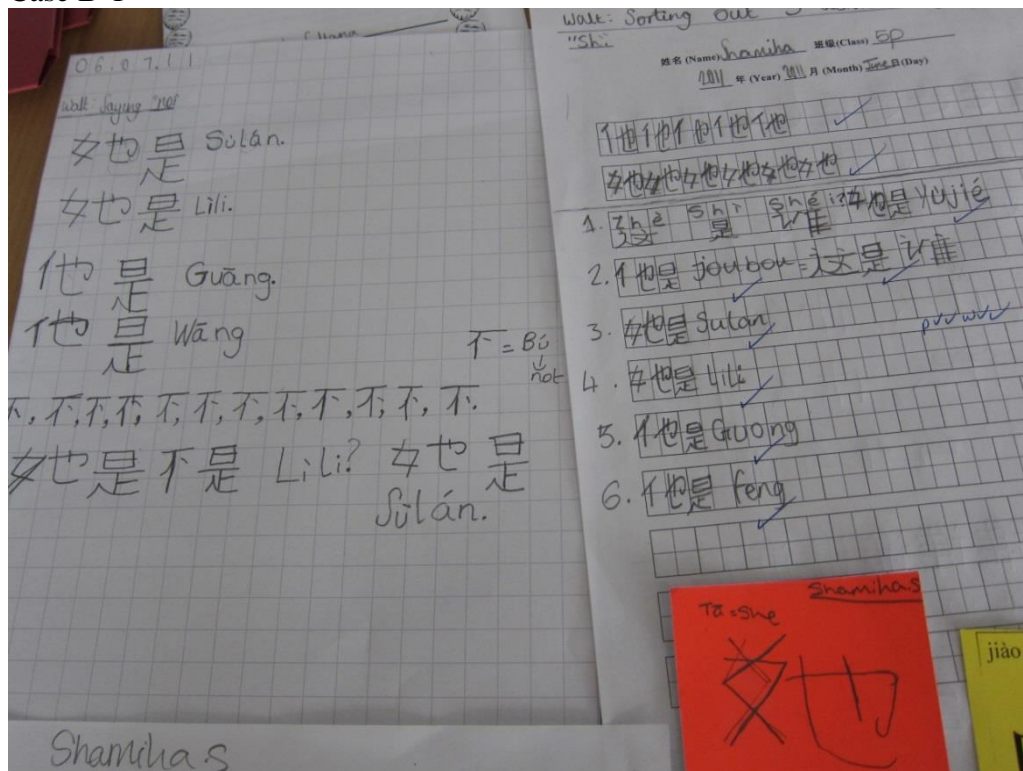 06.07.11
Walt: Saying "no"
她是 Sùlán.
她是 Lìli.
他是 Guāng.
他是 Wāng
不 = Bù
not
不, 不, 不, 不, 不, 不, 不, 不, 不, 不, 不, 不.
她是不是 Lìli? 她是
Sùlán.
Shamiha.S
Walt: Sorting Out
"Shi"
姓名 (Name) Shamiha 班级 (Class) 5P
2011 年 (Year) 2011 月 (Month) June 日 (Day)
他他他他他
她她她她她她
1. zhè shì shéi? 她是 Yujié
这是谁
2. 他是 joubou = 这是谁
3. 她是 Sulan
4. 她是 Lili
5. 他是 Guong
6. 他是 feng
Shamiha.S
Tā = She
她
jiào